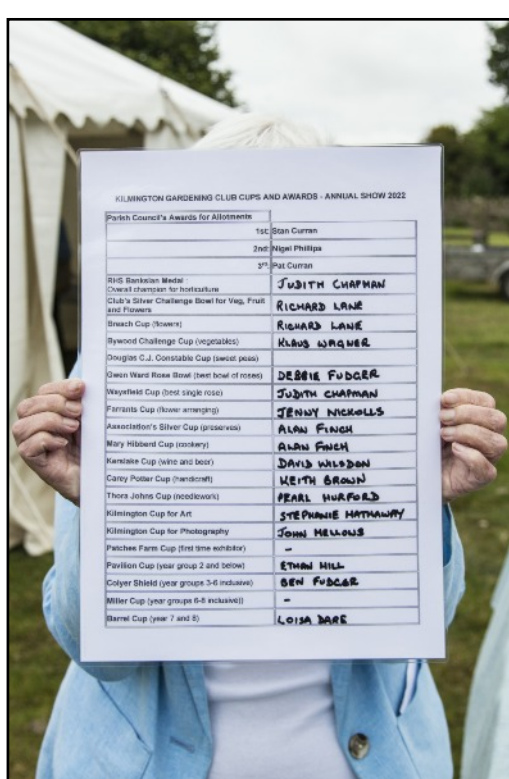 KILMINGTON GARDENING CLUB CUPS AND AWARDS - ANNUAL SHOW 2022
Parish Council's Awards for Allotments
1st: Stan Curran
2nd: Nigel Phillips
3rd: Pat Curran
RHS Banksian Medal :
Overall champion for horticulture JUDITH CHAPMAN
Club's Silver Challenge Bowl for Veg, Fruit
and Flowers RICHARD LANE
Breach Cup (flowers) RICHARD LANE
Bywood Challenge Cup (vegetables) KLAUS WAGNER
Douglas C.J. Constable Cup (sweet peas)
Gwen Ward Rose Bowl (best bowl of roses) DEBBIE FUDGER
Wayfield Cup (best single rose) JUDITH CHAPMAN
Farrants Cup (flower arranging) JENNY NICKOLLS
Association's Silver Cup (preserves) ALAN FINCH
Mary Hibberd Cup (cookery) ALAN FINCH
Kerslake Cup (wine and beer) DAVID WILSDON
Carey Potter Cup (handicraft) KEITH BROWN
Thora Johns Cup (needlework) PEARL HURFORD
Kilmington Cup for Art STEPHANIE HATHAWAY
Kilmington Cup for Photography JOHN MELLOWS
Patches Farm Cup (first time exhibitor) -
Pavilion Cup (year group 2 and below) ETHAN HILL
Colyer Shield (year groups 3-6 inclusive) BEN FUDGER
Miller Cup (year groups 6-8 inclusive)) -
Barrel Cup (year 7 and 8) LOISA DARE